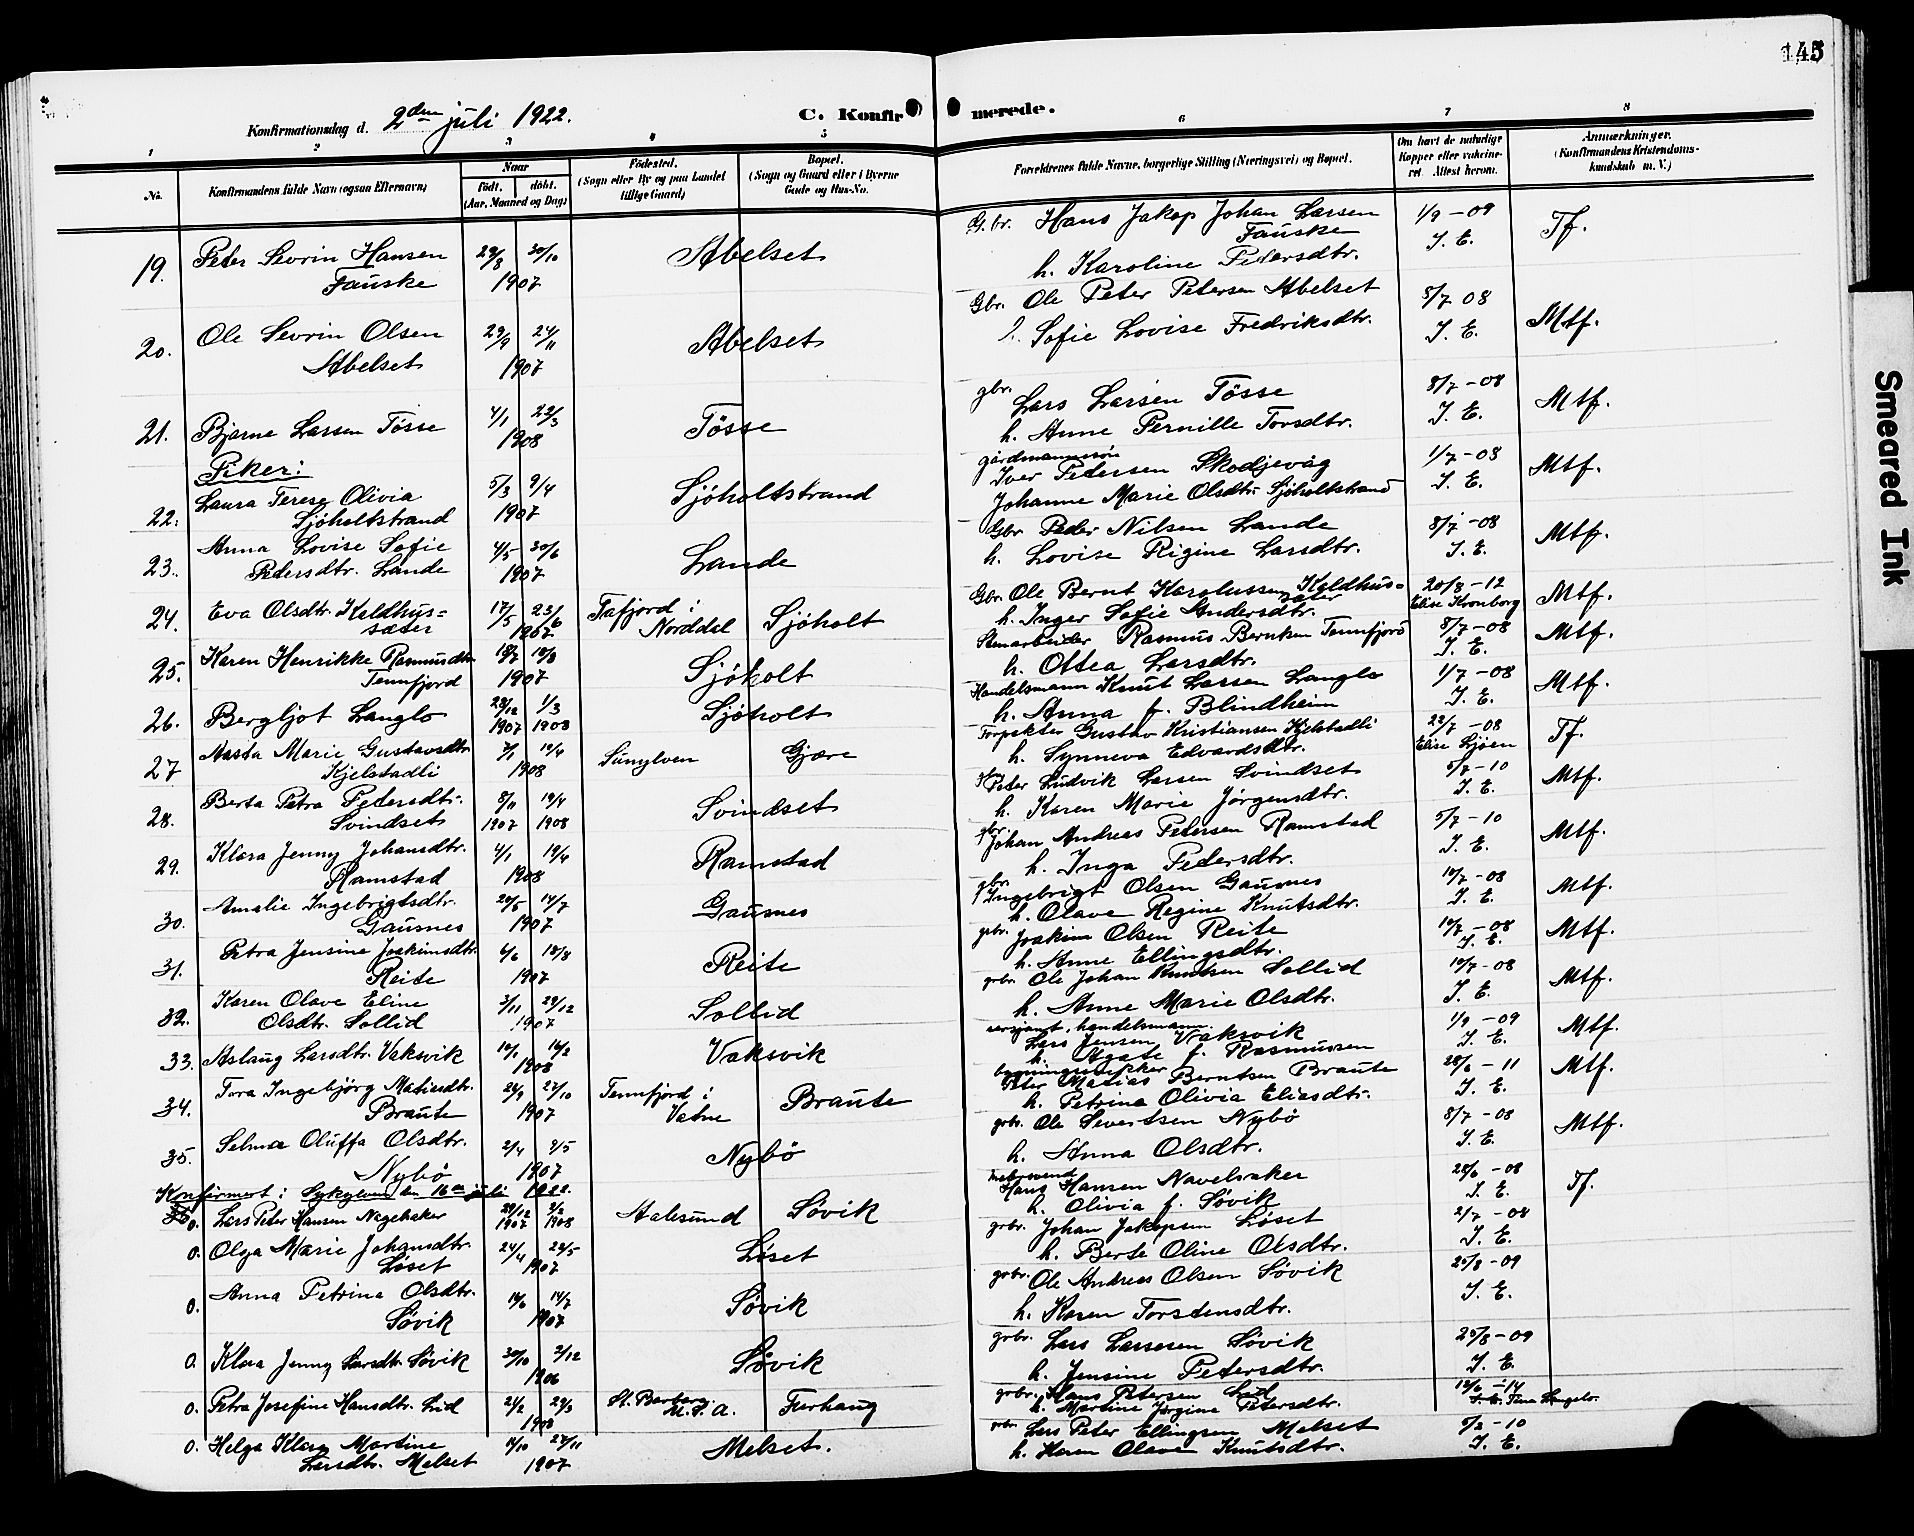 145
Konfirmationsdag d. 2den juli 1922.
C. Konfirmerede.
1 2 3 4 5 6 7 8
No.
Konfirmandens fulde Navn (ogsaa Efternavn)
Naar
födt. döbt.
(Aar, Maaned og Dag)
Födested.
(Sogn eller By og paa Landet
tillige Gaard)
Bopæl.
(Sogn og Gaard eller i Byerne
Gade og Hus-No.
Forældrenes fulde Navne, borgerlige Stilling (Næringsvei) og Bopæl.
Om havt de naturlige
Kopper eller vakcine-
ret. Attest herom.
Anmærkninger.
(Konfirmandens Kristendoms-
kundskab m. V.)
19. Peter Sevrin Hansen 29/8 20/10 Abelset G.br. Hans Jakop Johan Larsen 1/9 - 09 Tf.
Fauske 1907 Fauske I. E.
h. Karoline Petersdtr.
20. Ole Sevrin Olsen 29/9 24/11 Abelset Gbr. Ole Peter Petersen Abelset 8/7 08 Mtf.
Abelset 1907 Sofie Lovise Fredriksdtr. I. E.
21. Bjarne Larsen Tösse 4/1 22/3 Tösse gbr. Lars Larsen Tösse 8/7 - 08 Mtf.
1908 h. Anne Pernille Torsdtr. I. E.
Piker:
22. Laura Terese Olivia 5/3 9/4 Sjöholtstrand gårdmannssön Iver Petersen Skodjevåg 1/7 - 08 Mtf.
Sjöholtstrand 1907 Johanne Marie Olsdtr. Sjöholtstrand I. E.
23. Anna Lovise Sofie 4/5 30/6 Lande Gbr. Peder Nilsen Lande 8/7 - 08 Mtf.
Petersdtr. Lande 1907 h. Lovise Rigine Larsdtr. I. E.
24. Eva Olsdtr. Kaldhus= 17/5 23/6 Tafjord i Sjöholt Gbr. Ole Bernt Karolussen Kaldhus= 20/8 - 12 Mtf.
sæter 1907 Norddal h. Inger Sofie Andersdtr. sæter Elise Kronborg
25. Karen Henrikke Rasmusdtr. Sjöholt Stenarbeider Rasmus Berntsen Tennfjord 8/7 - 08 Mtf.
Tennfjord 1907 h. Ottea Larsdtr. I. E.
26. Bergljot Langlo 28/12 1/3 Sjöholt Handelsmann Knut Larsen Langlo 1/7 - 08 Mtf.
1907 1908 h. Anna f. Blindheim I. E.
27 Aasta Marie Gustavsdtr. Sunylven Gjære Forpakter Gustav Kristiansen Kjelstadli 23/7 - 08 Tf.
Kjelstadli 1908 h. Synneva Edvardsdtr. Elise Sjöen
28. Berta Petra Pedersdtr. 8/11 Svindset Peter Ludvik Larsen Svindset 5/7 - 10 Mtf.
Svindset 1907 1908 h. Karen Marie Jörgensdtr. I. E.
29. Klara Jenny Johansdtr. 4/1 Ramstad gbr. Johan Andreas Petersen Ramstad 5/7 - 10 Mtf.
Ramstad 1908 h. Inga Petersdtr. I. E.
30. Amalie Ingebrigtsdtr. 14/7 Gausnes gbr. Ingebrigt Olsen Gausnes 10/7 - 08 Mtf.
Gausnes 1907 h. Olave Regine Knutsdtr. I. E.
31. Petra Jensine Joakimsdtr. 6/6 18/8 Reite gbr. Joakim Olsen Reite 10/7 - 08 Mtf.
Reite 1907 h. Anne Ellingsdtr. I. E.
32. Karen Olave Eline 3/11 29/12 Sollid gbr. Ole Johan Knutsen Sollid 10/7 - 08 Mtf.
Olsdtr. Sollid 1907 h. Anne Marie Olsdtr. I. E.
33. Aslaug Larsdtr. Vaksvik 10/1 16/2 Vaksvik sersjant, handelsmann Lars Jensen Vaksvik 1/9 - 09 Mtf.
1908 h. Agate f. Rasmussen I. E.
34. Tora Ingebjörg Matiasdtr. 24/9 27/10 Tennfjord i Braute Peter Matias Berntsen Braute 28/6 - 11 Mtf.
Braute 1907 Vatne h. Petrina Olivia Eliasdtr. I. E.
35. Selma Oluffa Olsdtr. 2/4 9/5 Nybö gbr. Ole Severtsen Nybö 8/7 - 08 Mtf.
Nybö 1907 h. Anna Olsdtr. I. E.
Konfirmert i Sykylven den 16de juli 1922.
0. Lars Peter Hansen 29/12 2/2 Aalesund Sövik Hans Hansen Navelsaker 28/6 - 08 Tf.
1907 1908 h. Olivia f. Sövik I. E.
0. Olga Marie Johansdtr. 24/4 29/5 Löset gbr. Johan Jakopsen Löset 2/7 - 08
Löset 1907 h. Berte Oline Olsdtr. I. E.
0. Anna Petrina Olsdtr. 14/7 Sövik gbr. Ole Andreas Olsen Sövik 25/8 - 09
Sövik 1907 h. Karen Torstensdtr. I. E.
0. Klara Jenny Larsdtr. Sövik 30/10 2/12 Sövik gbr. Lars Larsesen Sövik 25/8 - 09
1906 h. Jensine Petersdtr. I. E.
0. Petra Josefine Hansdtr. Lid 21/2 29/3 St. Barbara Furhaug gbr. Hans Petersen Lid 12/6 - 14
1908 U.S.A. h. Martine Jörgine Petersdtr.
0. Helga Klara Martine 27/11 Melset. gbr. Lars Peter Ellingsen Melset 5/2 - 10
Larsdtr. Melset 1907 h. Karen Olave Knutsdtr. I. E.
Smeared Ink